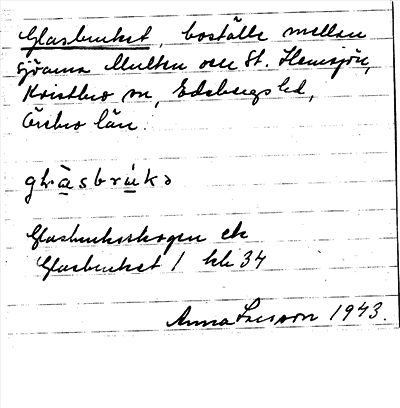 Glasbruket, boställe mellan
sjöarna Multen och St. Hemsjön,
Kristbro sn, Edsbergs hd,
Örebro län.
glàsbrúkə
Glasbruksskogen ek
Glasbruket 1 bl. 34
Anna Larsson 1943.